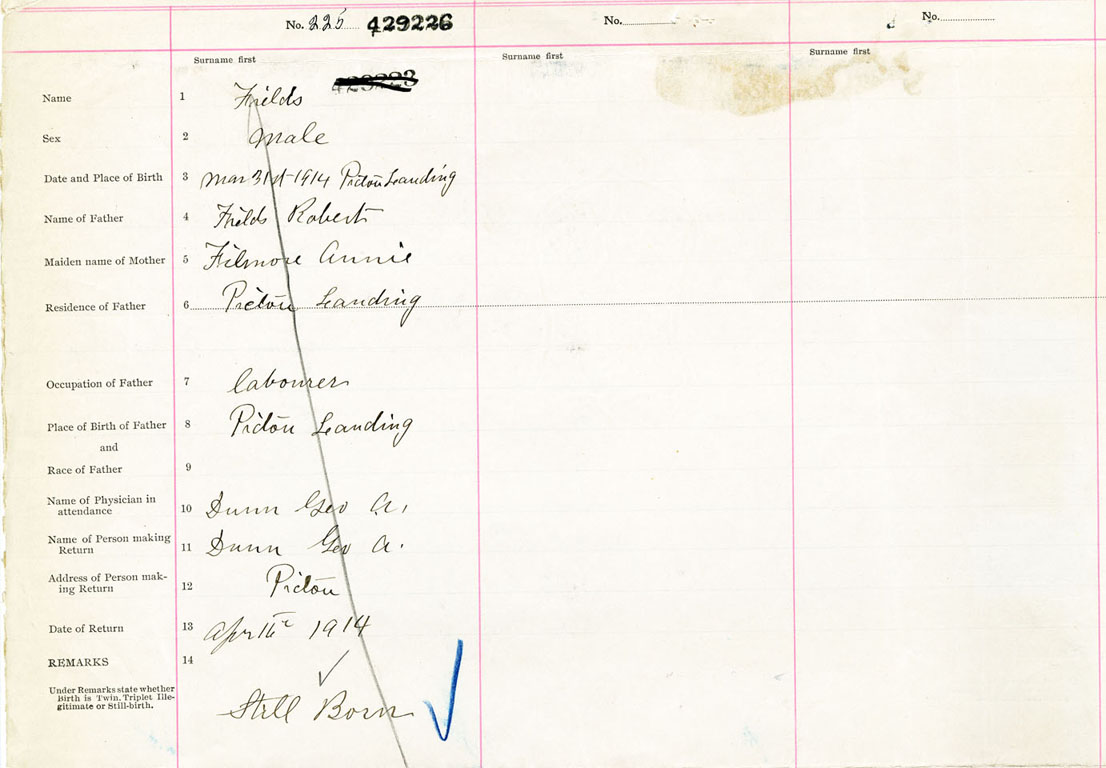 No. 225 429226 No. No.
Surname first Surname first Surname first
429223
Name 1 Fields
Sex 2 Male
Date and Place of Birth 3 Mar 31st 1914 Pictou Landing
Name of Father 4 Fields Robert
Maiden name of Mother 5 Filmore Annie
Residence of Father 6 Pictou Landing
Occupation of Father 7 labourer
Place of Birth of Father 8 Pictou Landing
and
Race of Father 9
Name of Physician in
attendance 10 Dunn Geo A.
Name of Person making
Return 11 Dunn Geo A.
Address of Person mak-
ing Return 12 Pictou
Date of Return 13 Apr 1914
REMARKS 14
Under Remarks state whether
Birth is Twin, Triplet Ille-
gitimate or Still-birth.
Still Born